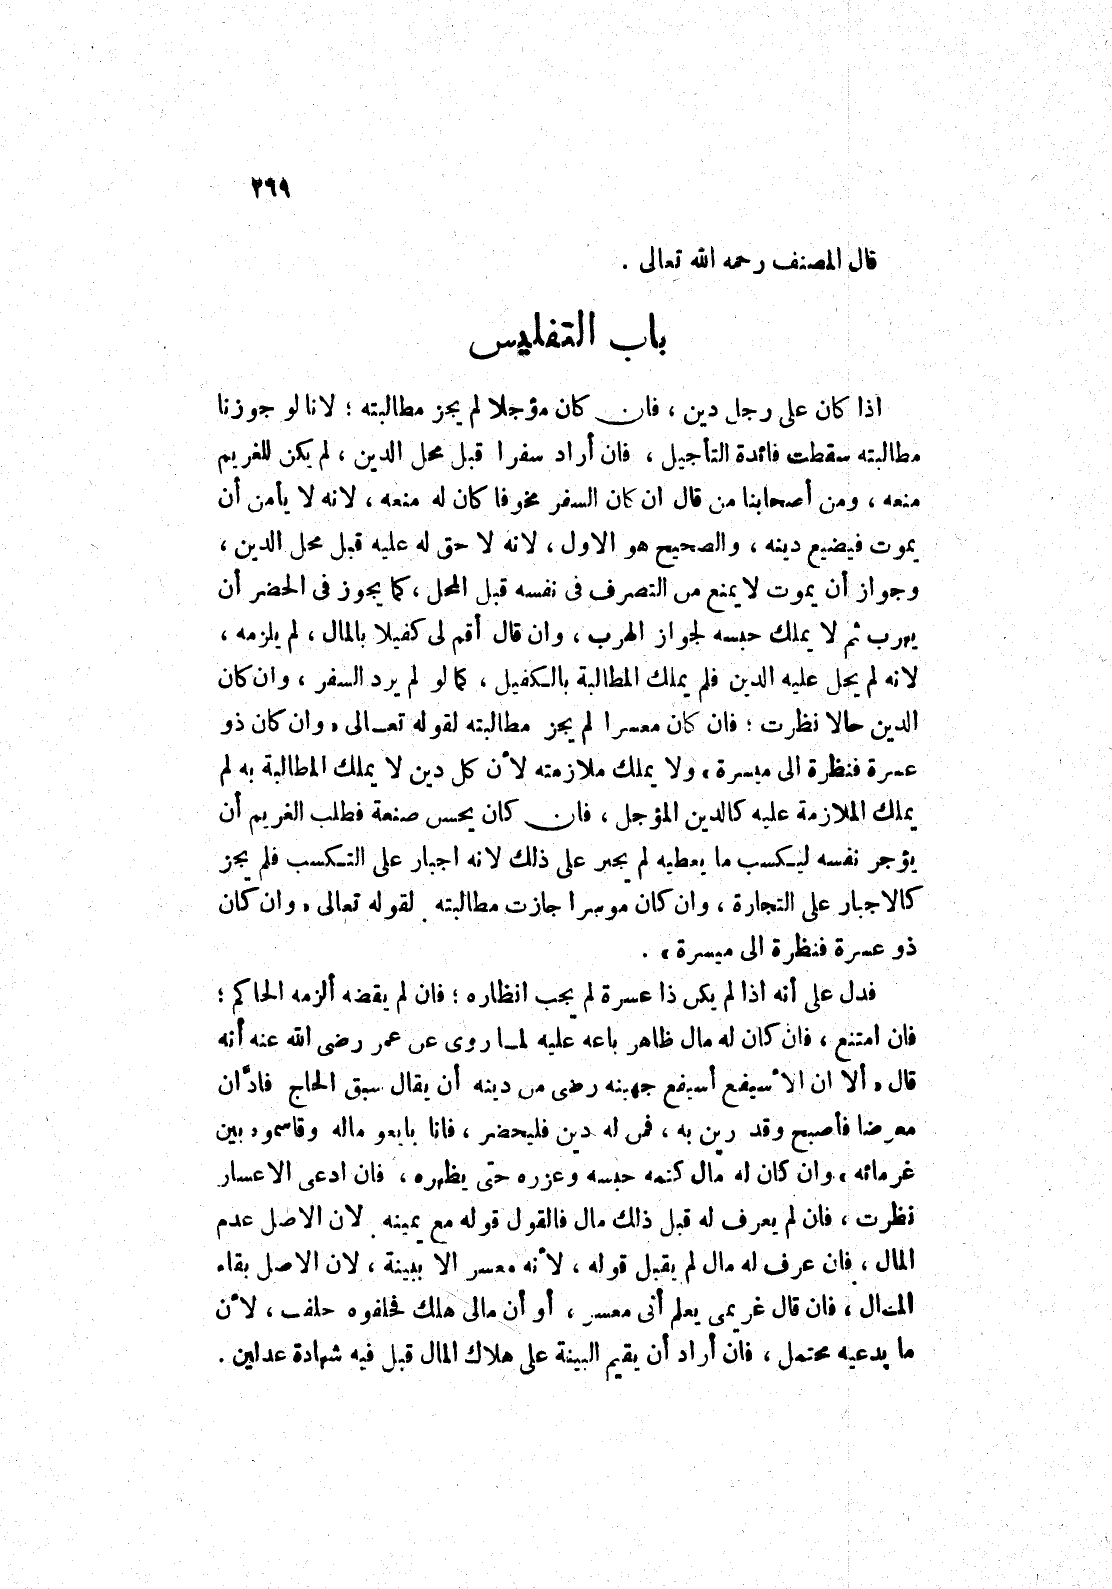 ٢٦٩
قال المصنف رحمه الله تعالى .
باب التفليس
اذا كان على رجل دين ، فان كان مؤجلا لم يجز مطالبته ؛ لانا لو جوزنا
مطالبته سقطت فائدة التأجيل ، فان أراد سفرا قبل محل الدين ، لم يكن للغريم
منعه ، ومن أصحابنا من قال ان كان السفر مخوفا كان له منعه ، لانه لا يأمن أن
يموت فيضيع دينه ، والصحيح هو الاول ، لانه لا حق له عليه قبل محل الدين ،
وجواز أن يموت لا يمنع من التصرف فى نفسه قبل المحل ، كما يجوز فى الحضر أن
يهرب ثم لا يملك حبسه لجواز الهرب ، وان قال أقم لى كفيلا بالمال ، لم يلزمه ،
لانه لم يحل عليه الدين فلم يملك المطالبة بالكفيل ، كما لو لم يرد السفر ، وان كان
الدين حالا نظرت ؛ فان كان معسرا لم يجز مطالبته لقوله تعالى « وان كان ذو
عسرة فنظرة الى ميسرة » ولا يملك ملازمته لأن كل دين لا يملك المطالبة به لم
يملك الملازمة عليه كالدين المؤجل ، فان كان يحسن صنعة فطلب الغريم أن
يؤجر نفسه ليكسب ما يعطيه لم يجبر على ذلك لانه اجبار على التكسب فلم يجز
كالاجبار على التجارة ، وان كان موسرا جازت مطالبته لقوله تعالى « وان كان
ذو عسرة فنظرة الى ميسرة » .
فدل على أنه اذا لم يكن ذا عسرة لم يجب انظاره ؛ فان لم يقضه ألزمه الحاكم ؛
فان امتنع ، فان كان له مال ظاهر باعه عليه لما روى عن عمر رضى الله عنه أنه
قال « ألا ان الأسيفع أسيفع جهينه رضى من دينه أن يقال سبق الحاج فادَّان
معرضا فأصبح وقد رين به ، فمن له دين فليحضر ، فانا بايعو ماله وقاسموه بين
غرمائه » وان كان له مال كتمه حبسه وعزره حتى يظهره ، فان ادعى الاعسار
نظرت ، فان لم يعرف له قبل ذلك مال فالقول قوله مع يمينه لان الاصل عدم
المال ، فان عرف له مال لم يقبل قوله ، لأنه معسر الا ببينة ، لان الاصل بقاء
المال ، فان قال غريمى يعلم أنى معسر ، أو أن مالى هلك فحلفوه حلف ، لأن
ما يدعيه محتمل ، فان أراد أن يقيم البينة على هلاك المال قبل فيه شهادة عدلين .